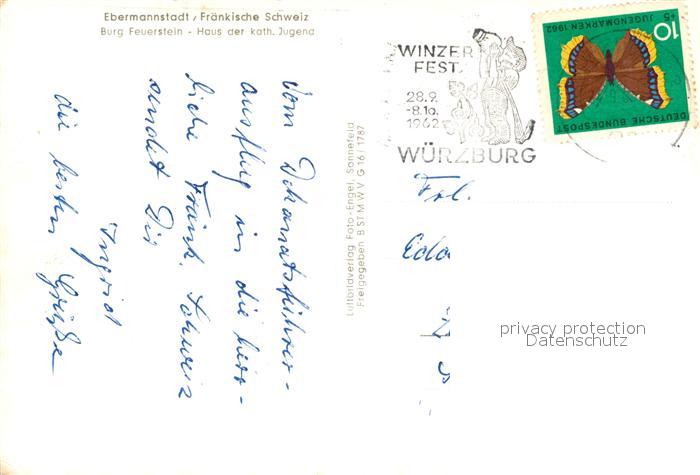 Ebermannstadt / Fränkische Schweiz
Burg Feuerstein - Haus der kath. Jugend
Vom Dekanatsführer-
ausflug in die herr-
liche Fränk. Schweiz
sendet Dir
die besten Grüße
Ingrid
Luftbildverlag Foto-Engel, Sonnefeld
Freigegeben B STMWV G 16/1787
WINZER
FEST.
28.9.
-8.10.
1962
WÜRZBURG
10
+5
JUGENDMARKEN 1962
DEUTSCHE BUNDESPOST
Frl.
Eda
privacy protection
Datenschutz